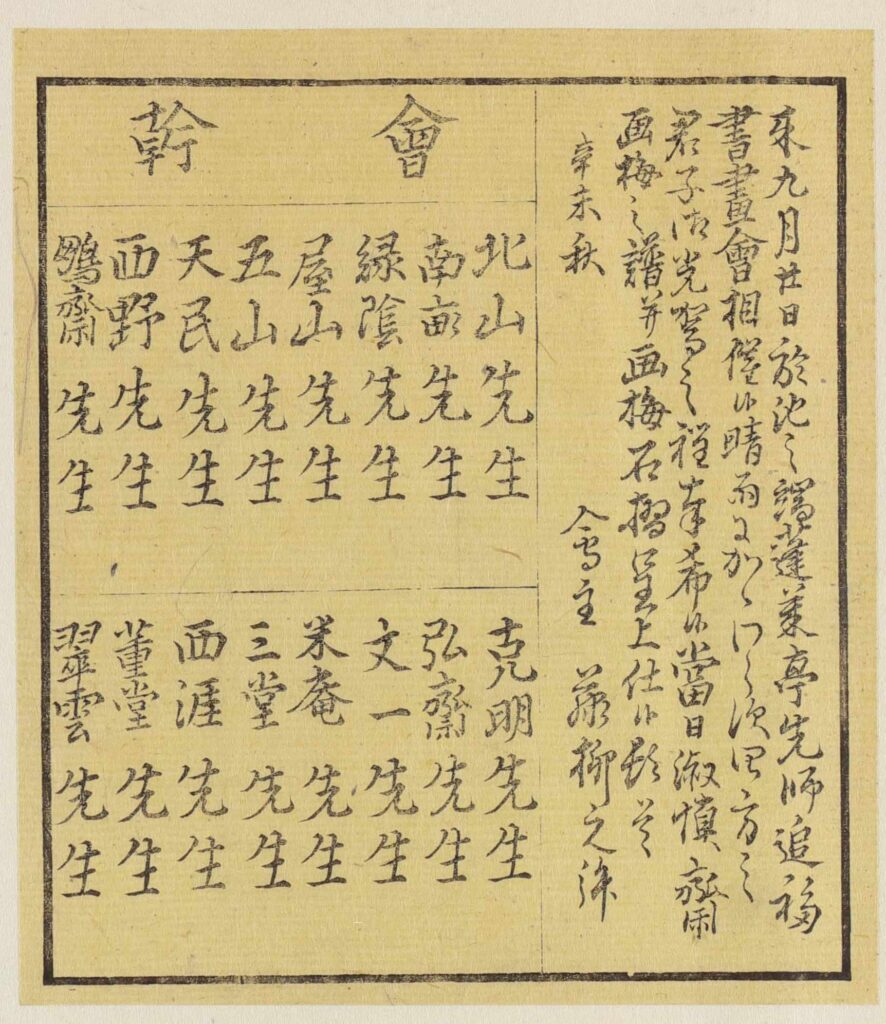 来九月廿日於池之端蓬莱亭先師追福
書畫會相催候晴雨ニかゝハらす四方之
君子御光駕之程奉希候當日淑慎齋
画梅之譜并画梅石摺呈上仕候
辛未秋
會主
會幹
北山先生
南畝先生
緑陰先生
屋山先生
五山先生
天民先生
西野先生
鵬齋先生
克明先生
弘齋先生
文一先生
米庵先生
三堂先生
西涯先生
董堂先生
翠雲先生